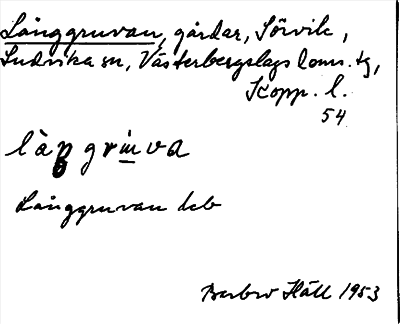 Långgruvan, gårdar, Sörvik,
Ludvika sn, Västerbergslags doms. tg,
Kopp. l.
54
Långgruvan dcb
Barbro Häll 1953